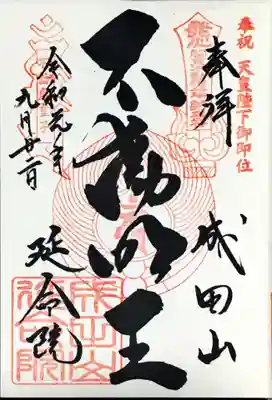 奉祝 天皇陛下御即位
奉拝
成田山
不動明王
令和元年
九月廿二日
延命院